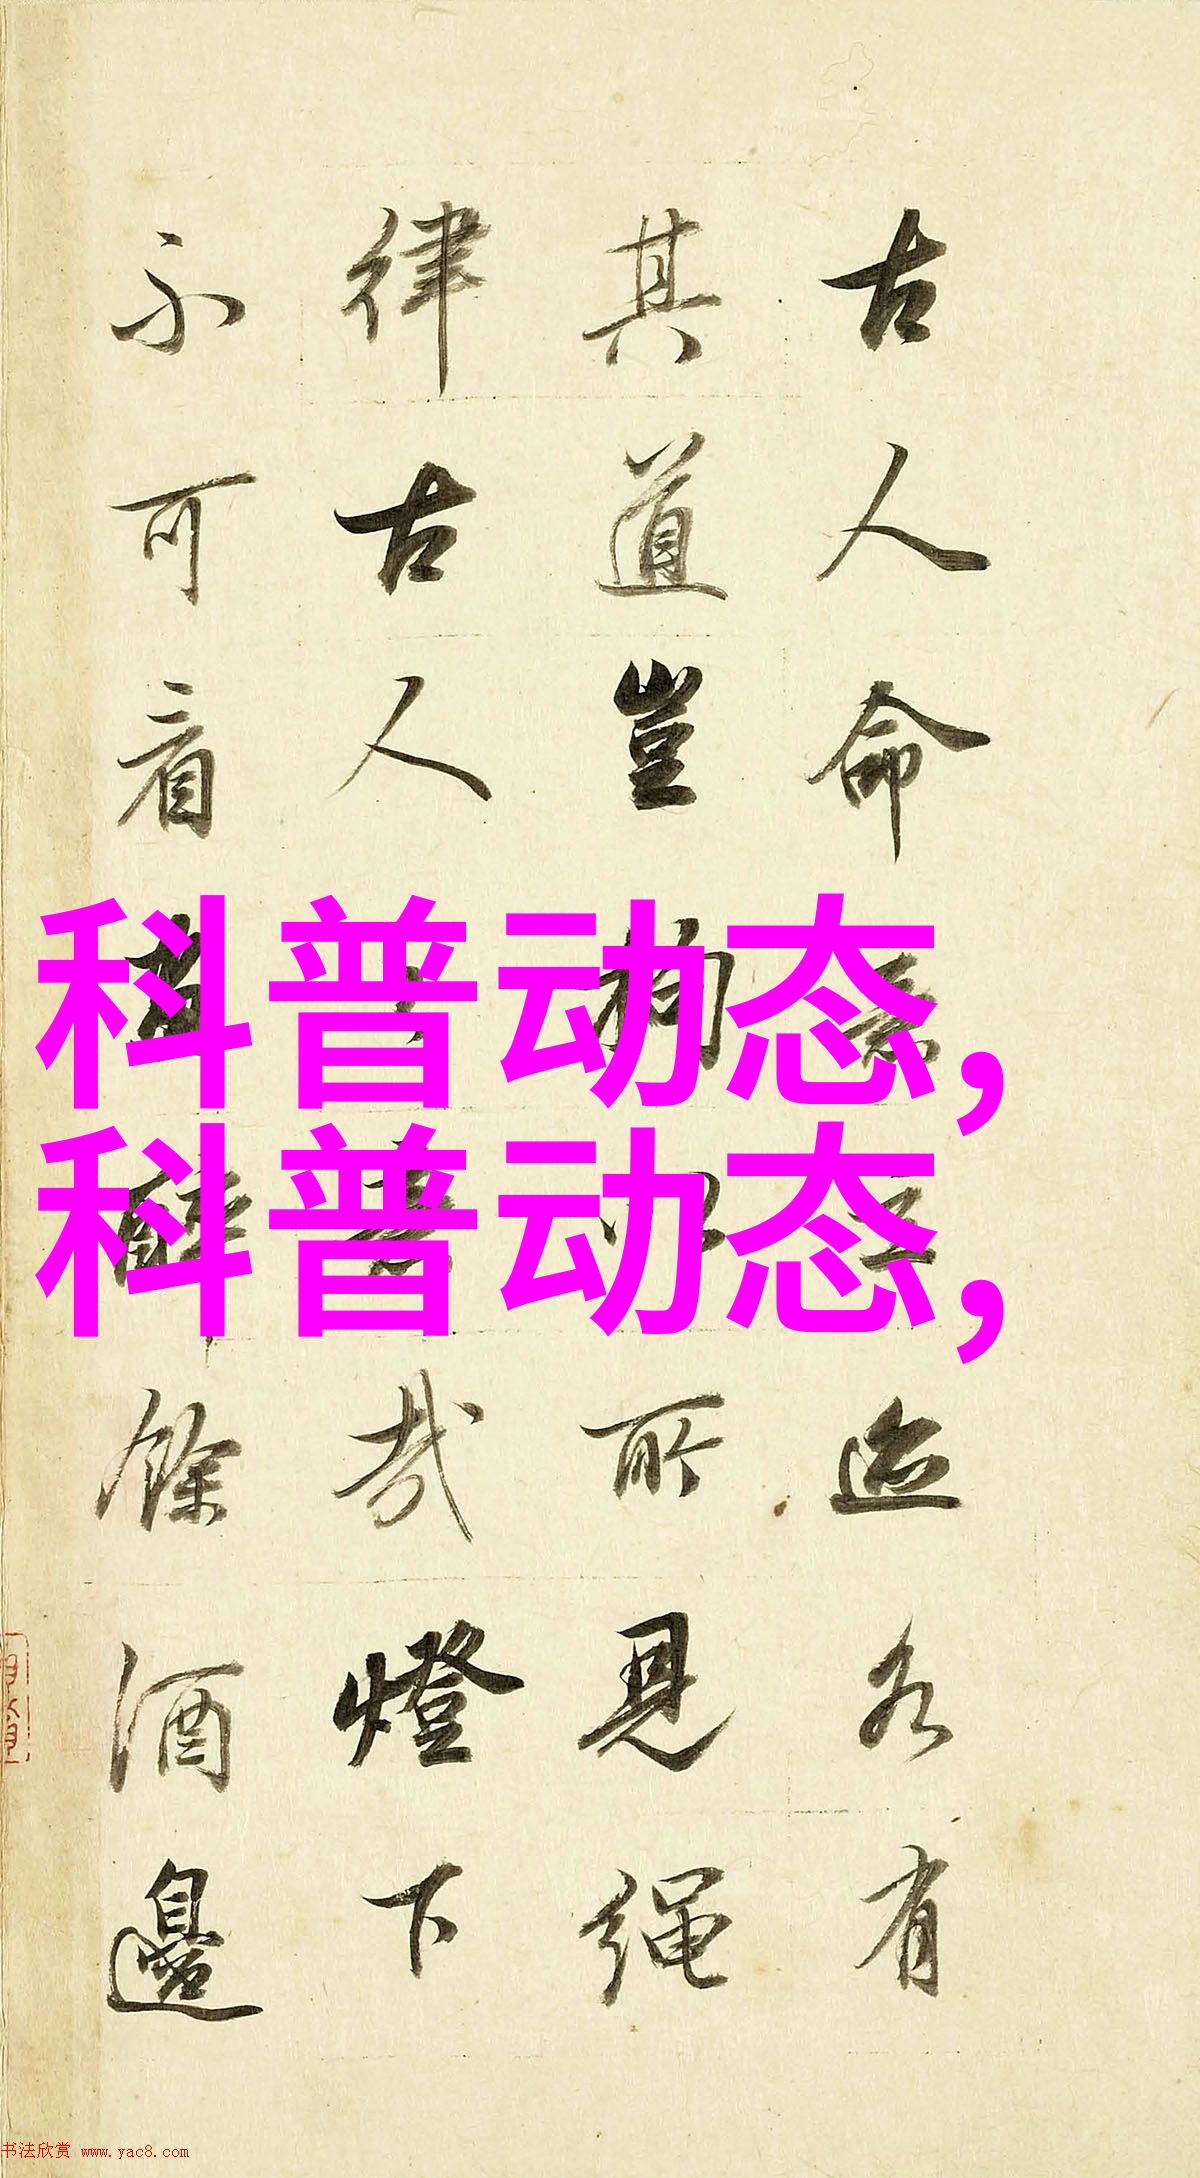 古人命意迹各有
其道豈拘所見繩
律古人意哉燈下
不可看醉餘酒邊
科普动态,
科普动态,
书法欣赏 www.yac8.com